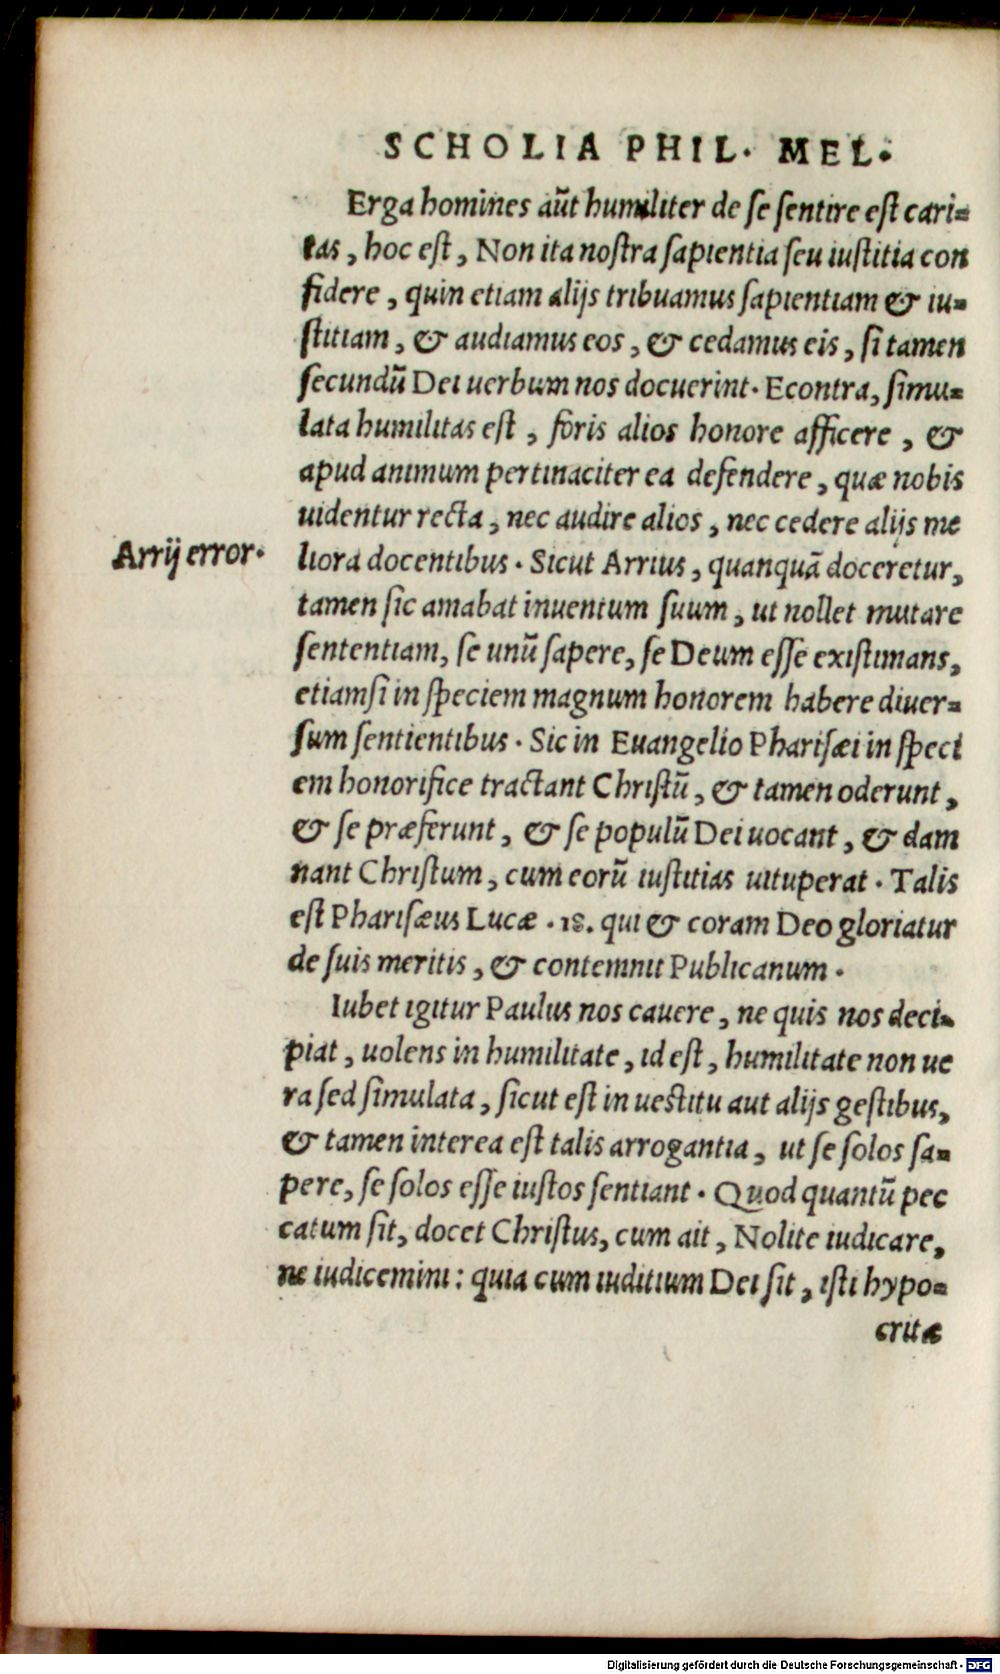 SCHOLIA PHIL. MEL.
Erga homines aūt humiliter de se sentire est cari-
tas, hoc est, Non ita nostra sapientia seu iustitia con
fidere, quin etiam alijs tribuamus sapientiam & iu-
stitiam, & audiamus eos, & cedamus eis, si tamen
secundū Dei uerbum nos docuerint. Econtra, simu-
lata humilitas est, foris alios honore afficere, &
apud animum pertinaciter ea defendere, quæ nobis
uidentur recta, nec audire alios, nec cedere alijs me
Arrij error.
liora docentibus. Sicut Arrius, quanquā doceretur,
tamen sic amabat inuentum suum, ut nollet mutare
sententiam, se unū sapere, se Deum esse existimans,
etiamsi in speciem magnum honorem habere diuer-
sum sentientibus. Sic in Euangelio Pharisæi in speci
em honorifice tractant Christū, & tamen oderunt,
& se præferunt, & se populū Dei uocant, & dam
nant Christum, cum eorū iustitias uituperat. Talis
est Pharisæus Lucæ .18. qui & coram Deo gloriatur
de suis meritis, & contemnit Publicanum.
Iubet igitur Paulus nos cauere, ne quis nos deci-
piat, uolens in humilitate, id est, humilitate non ue
ra sed simulata, sicut est in uestitu aut alijs gestibus,
& tamen interea est talis arrogantia, ut se solos sa-
pere, se solos esse iustos sentiant. Quod quantū pec
catum sit, docet Christus, cum ait, Nolite iudicare,
ne iudicemini: quia cum iuditium Dei sit, isti hypo-
critæ
Digitalisierung gefördert durch die Deutsche Forschungsgemeinschaft - DFG